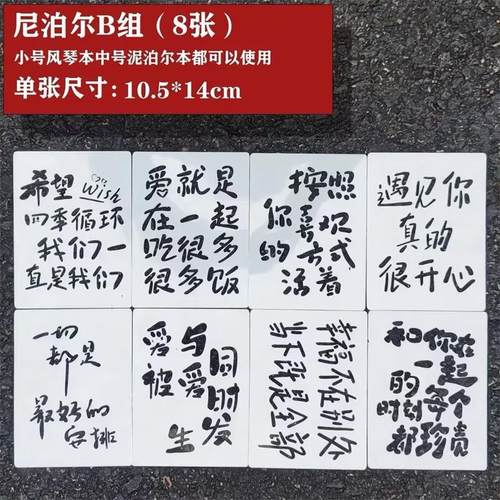 尼泊尔B组（8张）
小号风琴本中号泥泊尔本都可以使用
单张尺寸：10.5*14cm
希望 wish
四季循环
我们一
直是我们
爱就是
在一起
吃很多
很多饭
按照
你喜欢
的方式
活着
遇见你
真的
很开心
一切
都是
最好的
安排
爱与
被爱
同时发
生
幸福不在别处
当下既是全部
和你在
一起
的每个
时刻
都珍贵